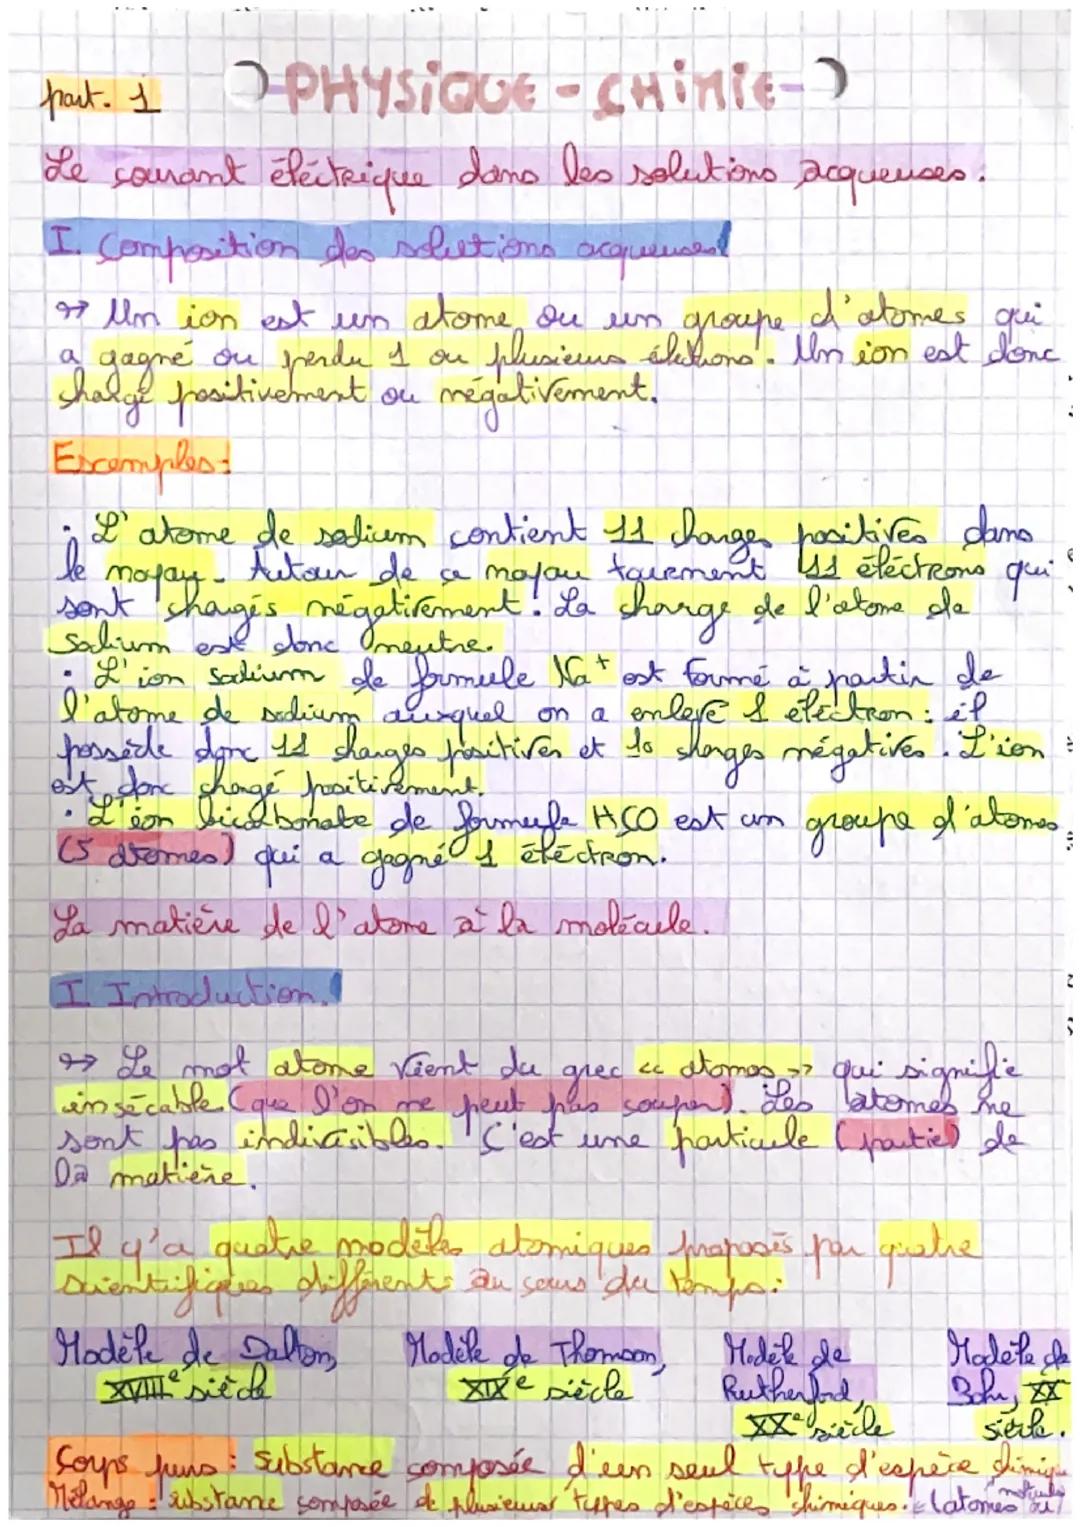 part. 1
PHYSIQUE - CHIMIE
Le courant éléctrique dans les solutions acqueuses.
I. Composition des solutions acqueuses
↦ Un ion est un atome ou un groupe d'atomes qui
a gagné ou perdu 1 ou plusieurs éléctrons. Un ion est donc
chargé positivement ou négativement.
Excemples:
• L'atome de sodium contient 11 charges positives dans
le noyau. Autour de ce noyau tournent 11 éléctrons qui
sont chargés négativement. La charge de l'atome de
Sodium est donc neutre.
• L'ion sodium de formule Na⁺ est formé à partir de
l'atome de sodium auxquel on a enlevé 1 éléctron: il
possède donc 11 charges positives et 10 charges négatives. L'ion
est donc chargé positivement.
• L'ion bicarbonate de formule HCO est un groupe d'atomes
(5 atomes) qui a gagné 1 éléctron.
La matière de l'atome à la molécule.
I Introduction.
↦ Le mot atome vient du grec << atomos >> qui signifie
insécable (que l'on ne peut pas couper). Les atomes ne
sont pas indivisibles. C'est une particule (partie) de
la matière.
Il y'a quatre modèles atomiques proposés par quatre
scientifiques différents au cours du temps:
Modèle de Dalton, Modèle de Thomson, Modèle de Modèle de
XVIIIe siècle XIXe siècle Rutherford, Bohr, XX
XXe siècle siècle.
Corps purs: Substance composée d'un seul type d'espèce chimique
Mélange: substance composée de plusieurs types d'espèces chimiques. (atomes ou